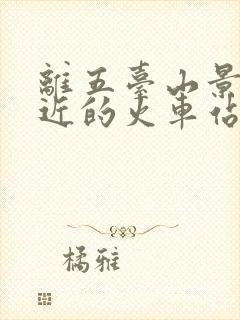 離五臺山景
近的火車佔
橘雅